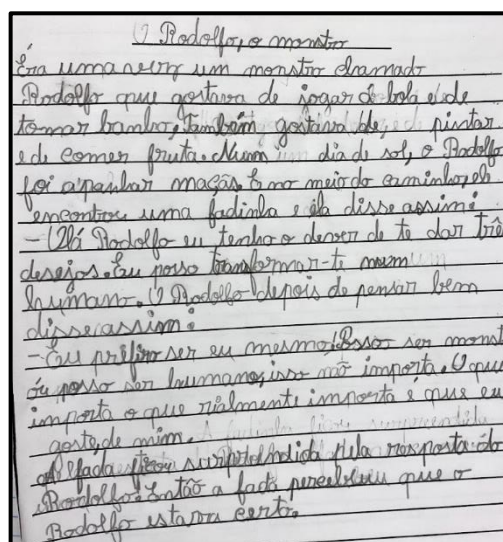 O Rodolfo, o monstro
Era uma vez um monstro chamado
Rodolfo que gostava de jogar á bola e de
tomar banho, Também gostava de, pintar
e de comer fruta. Num dia de sol, o Rodolfo
foi apanhar maçãs. E no meio do caminho, eli
encontrou uma fadinha e ela disse assim:
- Olá Rodolfo eu tenho o dever de te dar três
desejos. Eu posso transformar-te num
humano. O Rodolfo depois de pensar bem
disse assim:
- Eu prifiro ser eu mesmo! Posso ser monst
ou posso ser humano, isso não importa. O que
importa o que rialmente importa é que eu
goste, de mim.
A fada ficou surpriendida pela resposta do
Rodolfo. Então a fada percebeu que o
Rodolfo estava certo.